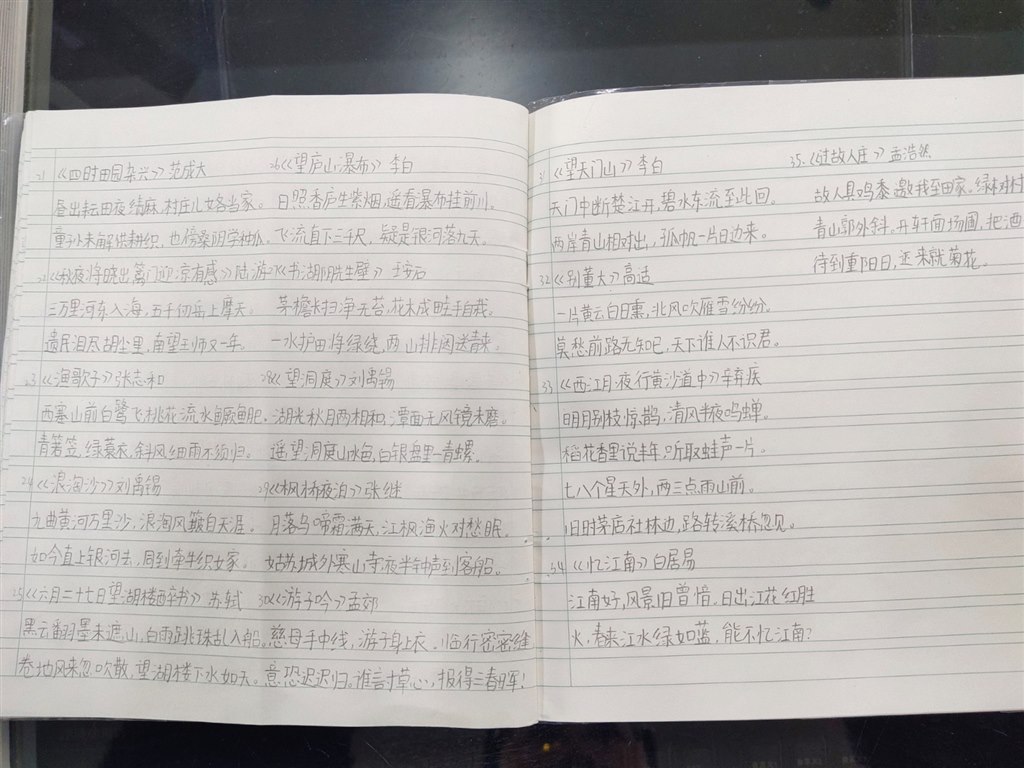 21 《四时田园杂兴》范成大
昼出耘田夜绩麻,村庄儿女各当家。
童孙未解供耕织,也傍桑阴学种瓜。
22 《秋夜将晓出篱门迎凉有感》陆游
三万里河东入海,五千仞岳上摩天。
遗民泪尽胡尘里,南望王师又一年。
23 《渔歌子》张志和
西塞山前白鹭飞,桃花流水鳜鱼肥。
青箬笠,绿蓑衣,斜风细雨不须归。
24 《浪淘沙》刘禹锡
九曲黄河万里沙,浪淘风簸自天涯。
如今直上银河去,同到牵牛织女家。
25 《六月二十七日望湖楼醉书》苏轼
黑云翻墨未遮山,白雨跳珠乱入船。
卷地风来忽吹散,望湖楼下水如天。
26 《望庐山瀑布》李白
日照香庐生紫烟,遥看瀑布挂前川。
飞流直下三千尺,疑是银河落九天。
27 《书湖阴先生壁》王安石
茅檐长扫净无苔,花木成畦手自栽。
一水护田将绿绕,两山排闼送青来。
28 《望洞庭》刘禹锡
湖光秋月两相和,潭面无风镜未磨。
遥望洞庭山水色,白银盘里一青螺。
29 《枫桥夜泊》张继
月落乌啼霜满天,江枫渔火对愁眠。
姑苏城外寒山寺,夜半钟声到客船。
30 《游子吟》孟郊
慈母手中线,游子身上衣。临行密密缝
意恐迟迟归。谁言寸草心,报得三春晖!
31 《望天门山》李白
天门中断楚江开,碧水东流至此回。
两岸青山相对出,孤帆一片日边来。
32 《别董大》高适
一片黄云白日曛,北风吹雁雪纷纷。
莫愁前路无知己,天下谁人不识君。
33 《西江月·夜行黄沙道中》辛弃疾
明月别枝惊鹊,清风半夜鸣蝉。
稻花香里说丰年,听取蛙声一片。
七八个星天外,两三点雨山前。
旧时茅店社林边,路转溪桥忽见。
34 《忆江南》白居易
江南好,风景旧曾谙,日出江花红胜
火,春来江水绿如蓝,能不忆江南?
35.《过故人庄》孟浩然
故人具鸡黍,邀我至田家。绿树村
青山郭外斜。开轩面场圃,把酒
待到重阳日,还来就菊花。